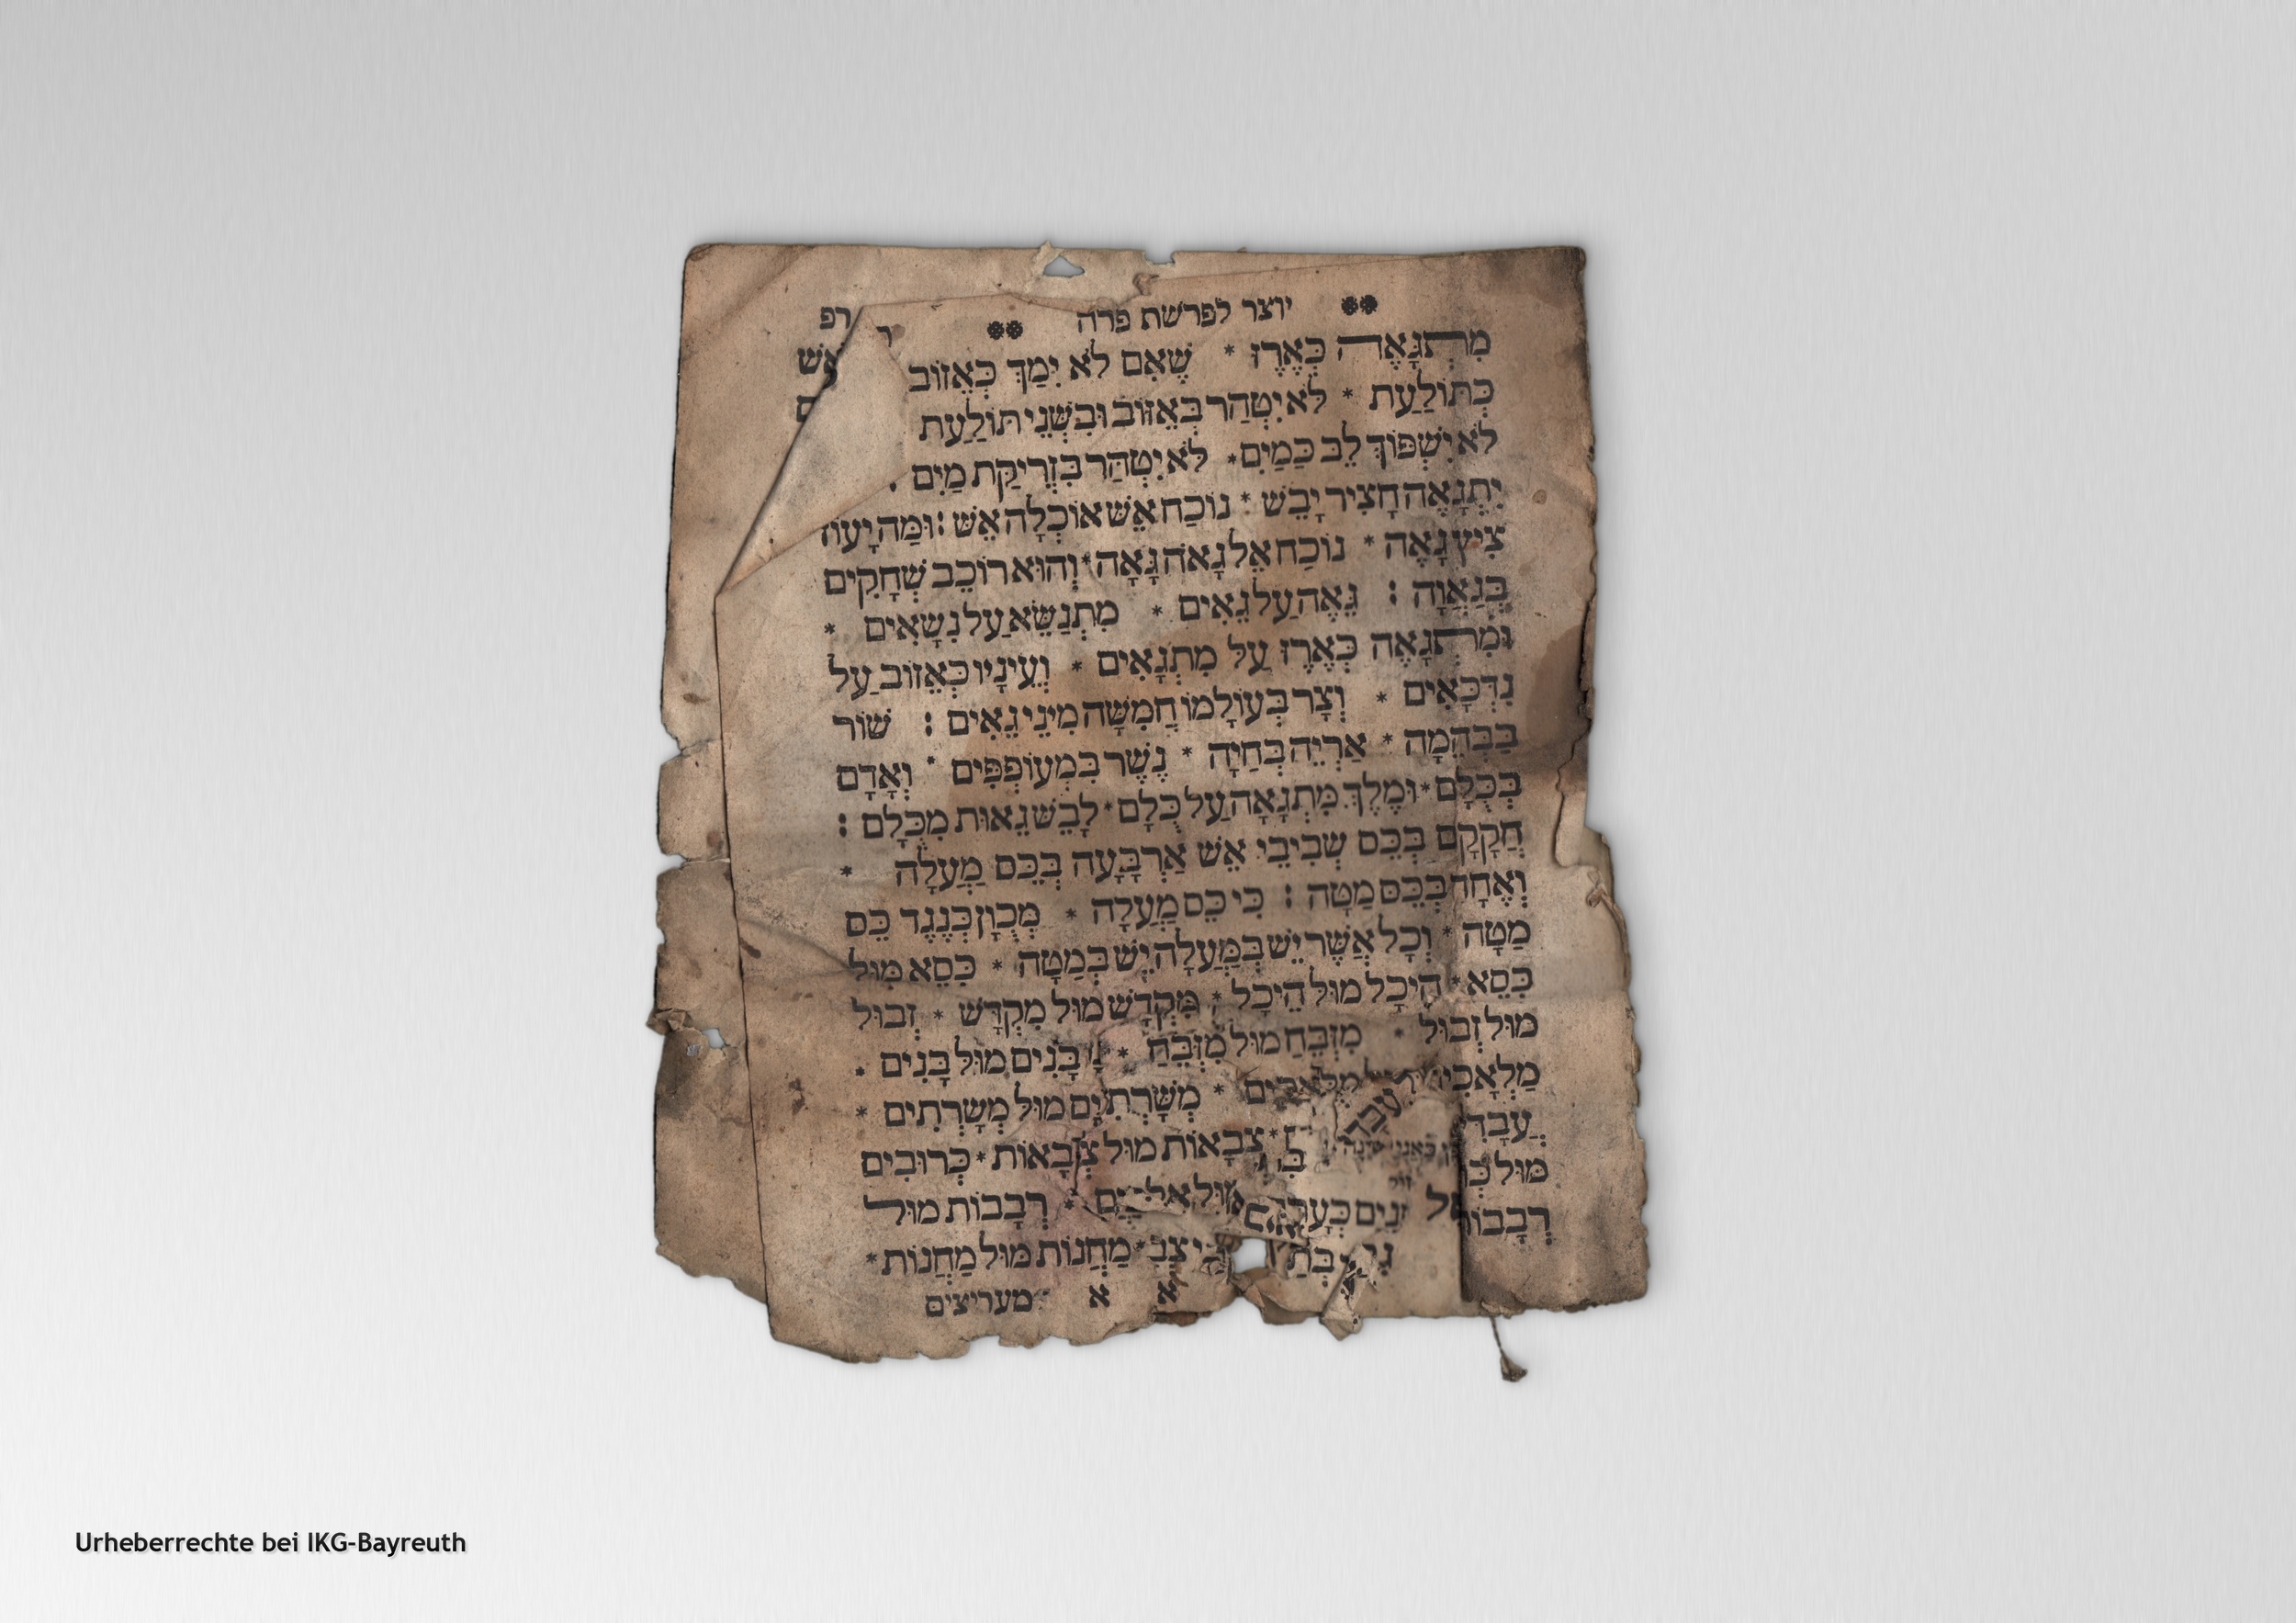 יוצר לפרשת פרה רפ
מִתְגָּאֶה כְּאֶרֶז * שֶׁאִם לֹא יִמַךְ כְּאֵזוֹב אֵשׁ
כְּתוֹלַעַת * לֹא יִטְהַר בְּאֵזוֹב וּבִשְׁנֵי תוֹלַעַת
לֹא יִשְׁפּוֹךְ לֵב כַּמַיִם * לֹא יִטְהַר בִּזְרִיקַת מַיִם
יִתְגָאֶה חָצִיר יָבֵשׁ * נוֹכַח אֵשׁ אוֹכְלָה אֵשׁ : וּמַה יָעוֹז
צִיץ גָאֶה * נוֹכַח אֵל גָאֹה גָּאָה * וְהוּא רוֹכֵב שְׁחָקִים
בְּגַאֲוָה : גֵּאֶה עַל גֵּאִים * מִתְנַשֵּׂא עַל נִשָׂאִים *
וּמִתְגָאֶה כְּאֶרֶז עַל מִתְגָאִים * וְעֵינָיו כְּאֵזוֹב עַל
נִדְכָּאִים * וְצָר בְּעוֹלָמוֹ חֲמִשָּׁה מִינֵי גֵאִים : שׁוֹר
בַּבְּהֵמָה * אַרְיֵה בְּחַיָה * נֶשֶׁר בִּמְעוֹפְפִים * וְאָדָם
בְּכֻלָּם * וּמֶלֶךְ מִתְגָאֶה עַל כֻּלָם * לָבֵשׁ גֵּאוּת מִכֻּלָם :
חֲקָקָם בְּכֵס שְׁבִיבֵי אֵשׁ אַרְבָּעָה בְּכֵס מַעְלָה *
וְאֶחָד בְּכֵס מַטָה : כִּי כֵס מַעְלָה * מְכֻוָן כְּנֶגֶד כֵּס
מַטָה * וְכָל אֲשֶׁר יֵשׁ בְּמַעְלָה יֵשׁ בְּמַטָה * כִּסֵא מוּל
כִּסֵא * הֵיכָל מוּל הֵיכָל * מִקְדָשׁ מוּל מִקְדָשׁ * זְבוּל
מוּל זְבוּל * מִזְבֵּחַ מוּל מִזְבֵּחַ * בָּנִים מוּל בָּנִים *
מַלְאָכִים מַלְאָכִים * מְשָׁרְתִים מוּל מְשָׁרְתִים *
צְבָאוֹת מוּל צְבָאוֹת * כְּרוּבִים
רְבָבוֹת מוּל
מַחֲנוֹת מוּל מַחֲנוֹת *
א א מעריצים
Urheberrechte bei IKG-Bayreuth